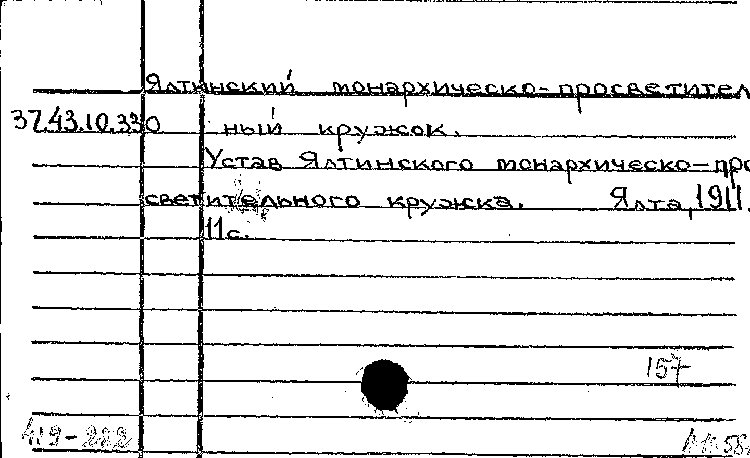 Ялтинский монархическо-просветител
37.43.10.330 ный кружок.
Устав Ялтинского монархическо-про
светительного кружка. Ялта, 1911.
11с.
157
419-222